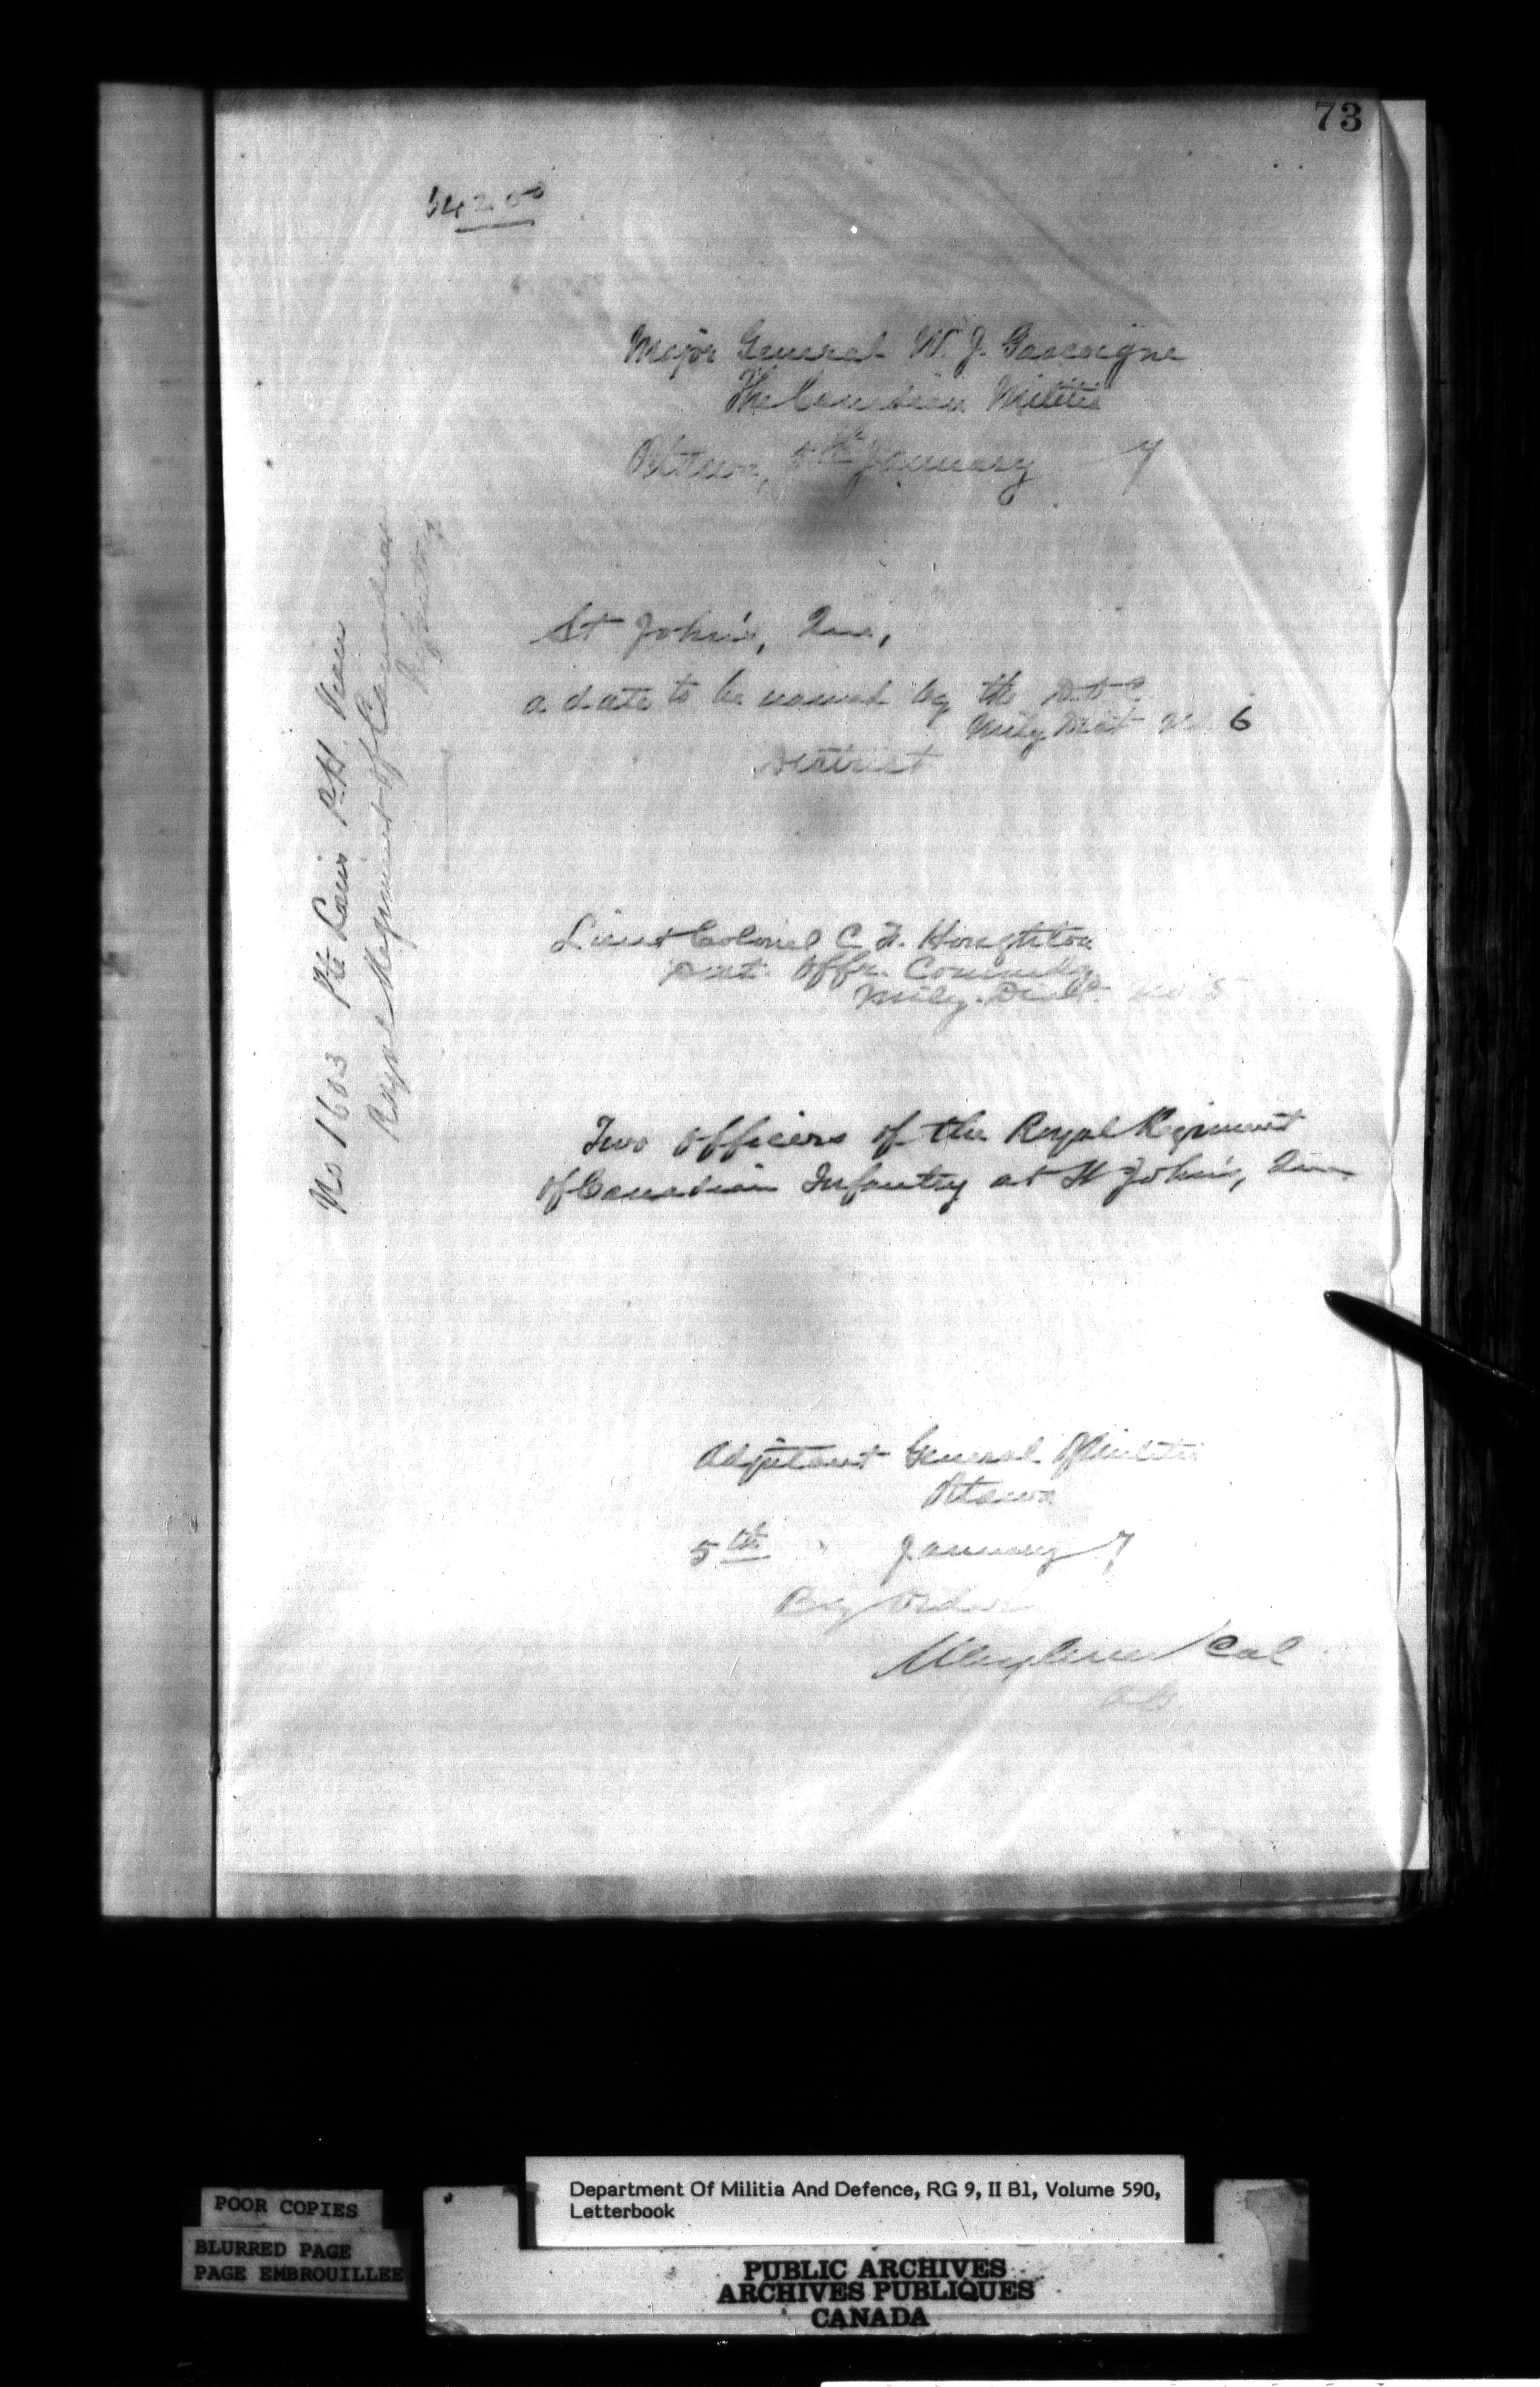 73
54200
Major General W. J. Gascoigne
The Canadian Militia
Ottawa, 5th January 7
St John's, Que,
a date to be named by the D.O.C.
Mily Dist No 6
District
No 1603 Pte Louis P.H.
Royal Regiment of Canadian
Infantry
Lieut Colonel C. F. Houghton
Dist. Offr. Commdg
Mily. Dist. No 5
Two Officers of the Royal Regiment
of Canadian Infantry at St John's, Que
Adjutant General of Militia
Ottawa
5th January 7
By Order
Col
A.G.
POOR COPIES
BLURRED PAGE
PAGE EMBROUILLEE
Department Of Militia And Defence, RG 9, II B1, Volume 590,
Letterbook
PUBLIC ARCHIVES
ARCHIVES PUBLIQUES
CANADA